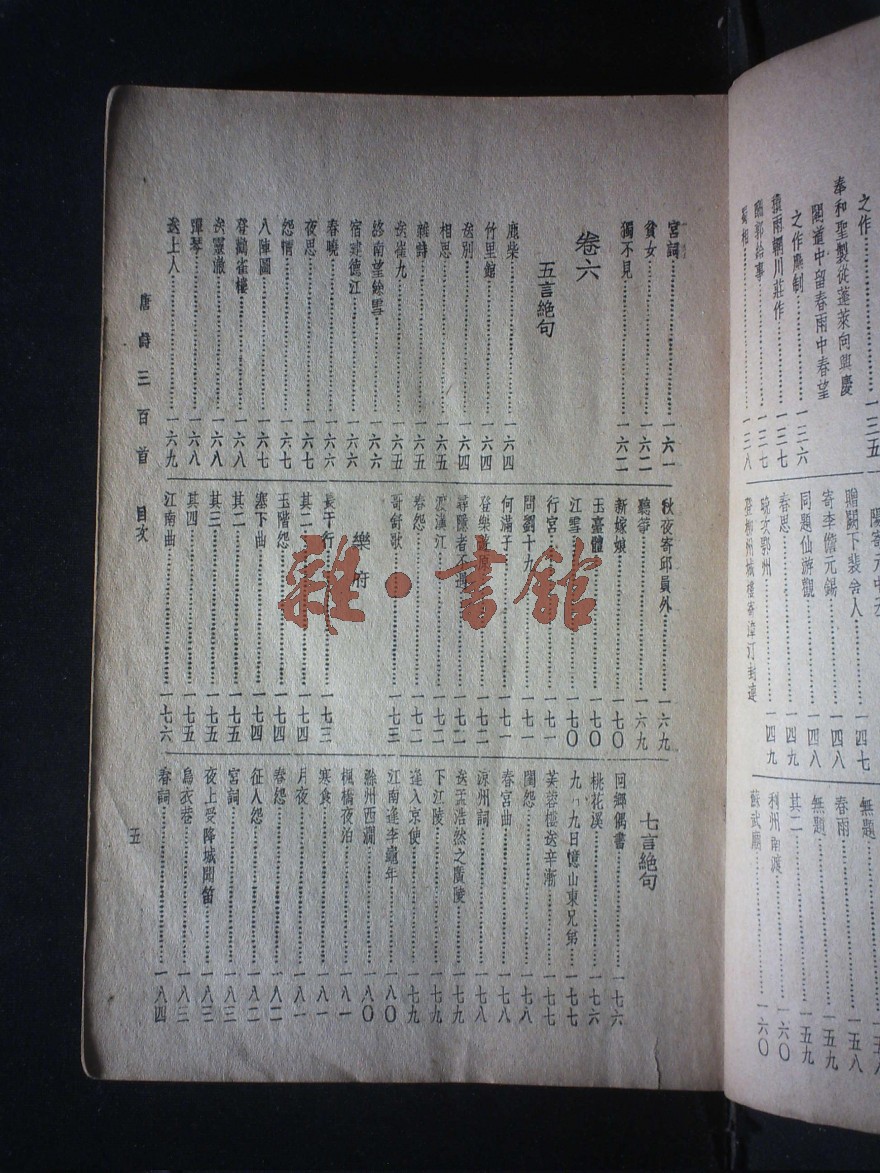 之作……一三五
奉和聖製從蓬萊向興慶
閣道中留春雨中春望
之作應制……一三六
積雨輞川莊作……一三七
酬郭給事……一三七
蜀相……一三八
贈闕下裴舍人……一四七
寄李儋元錫……一四八
同題仙游觀……一四八
春思……一四九
晚次鄂州……一四九
登柳州城樓寄漳汀封連
無題……一五八
春雨……一五八
無題……一五九
其二……一五九
利州南渡……一六〇
蘇武廟……一六〇
宮詞……一六一
貧女……一六二
獨不見……一六二
卷六
五言絕句
鹿柴……一六四
竹里館……一六四
送別……一六四
相思……一六五
雜詩……一六五
送崔九……一六五
終南望餘雪……一六六
宿建德江……一六六
春曉……一六六
夜思……一六七
怨情……一六七
八陣圖……一六七
登鸛雀樓……一六八
送靈澈……一六八
彈琴……一六八
送上人……一六九
秋夜寄邱員外……一六九
聽箏……一六九
新嫁娘……一七〇
玉臺體……一七〇
江雪……一七〇
行宮……一七一
問劉十九……一七一
何滿子……一七一
登樂遊原……一七二
尋隱者不遇……一七二
渡漢江……一七二
春怨……一七二
哥舒歌……一七三
樂府
長干行……一七三
其二……一七四
玉階怨……一七四
塞下曲……一七四
其二……一七五
其三……一七五
其四……一七五
江南曲……一七六
七言絕句
回鄉偶書……一七六
桃花溪……一七六
九月九日憶山東兄弟……一七七
芙蓉樓送辛漸……一七七
閨怨……一七八
春宮曲……一七八
涼州詞……一七八
送孟浩然之廣陵……一七九
下江陵……一七九
逢入京使……一七九
江南逢李龜年……一八〇
滁州西澗……一八〇
楓橋夜泊……一八一
寒食……一八一
月夜……一八一
春怨……一八二
征人怨……一八二
宮詞……一八三
夜上受降城聞笛……一八三
烏衣巷……一八三
春詞……一八四
唐詩三百首 目次
五
雜·書館